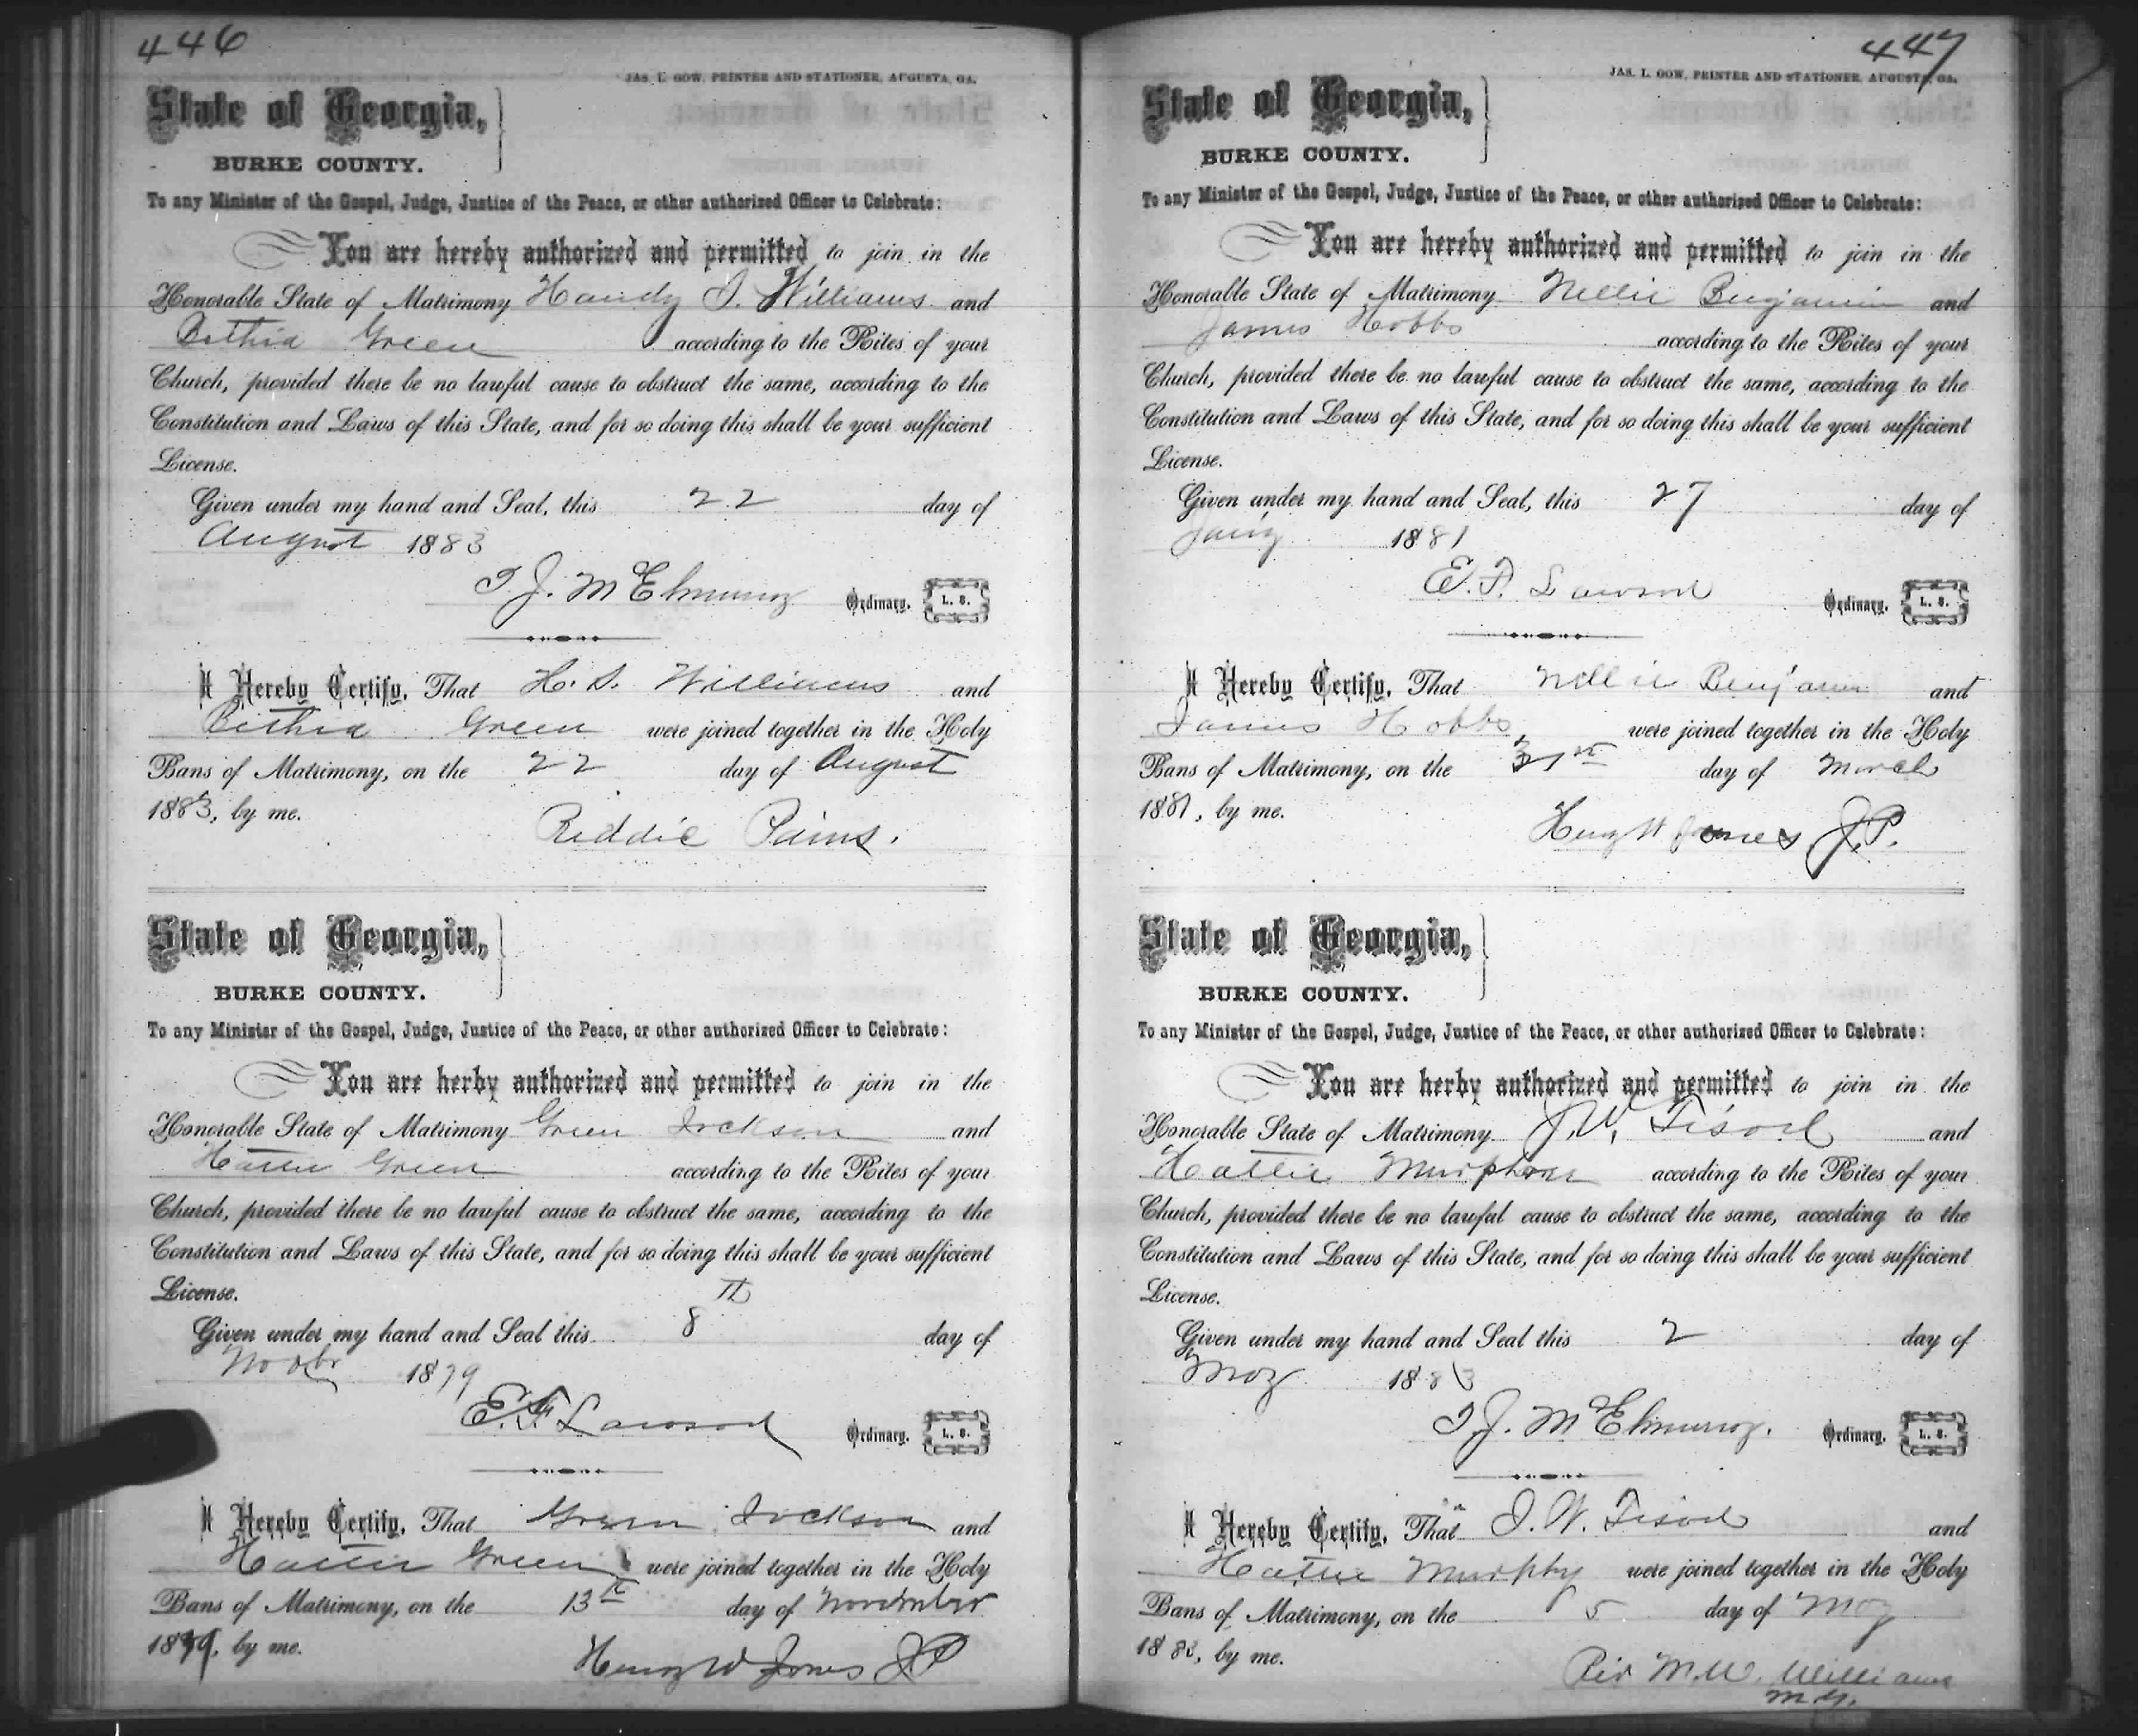 446
JAS. L. GOW, PRINTER AND STATIONER, AUGUSTA, GA.
State of Georgia,
BURKE COUNTY.
To any Minister of the Gospel, Judge, Justice of the Peace, or other authorized Officer to Celebrate:
You are hereby authorized and permitted to join in the
Honorable State of Matrimony Handy S. Williams and
Bethia Green according to the Rites of your
Church, provided there be no lawful cause to obstruct the same, according to the
Constitution and Laws of this State, and for so doing this shall be your sufficient
License.
Given under my hand and Seal, this 22 day of
August 1883
T. J. McElmurray Ordinary. L. S.
I Hereby Certify, That H. S. Williams and
Bethia Green were joined together in the Holy
Bans of Matrimony, on the 22 day of August
1883, by me.
Riddic
State of Georgia,
BURKE COUNTY.
To any Minister of the Gospel, Judge, Justice of the Peace, or other authorized Officer to Celebrate:
You are herby authorized and permitted to join in the
Honorable State of Matrimony Green Jackson and
Hattie Green according to the Rites of your
Church, provided there be no lawful cause to obstruct the same, according to the
Constitution and Laws of this State, and for so doing this shall be your sufficient
License.
Given under my hand and Seal this 8th day of
1879
E. F. Lawson Ordinary. L. S.
I Hereby Certify, That Green Jackson and
Hattie Green were joined together in the Holy
Bans of Matrimony, on the 13th day of November
1879, by me.
Henry W Jones JP
447
JAS. L. GOW, PRINTER AND STATIONER, AUGUSTA, GA.
State of Georgia,
BURKE COUNTY.
To any Minister of the Gospel, Judge, Justice of the Peace, or other authorized Officer to Celebrate:
You are hereby authorized and permitted to join in the
Honorable State of Matrimony Nellie Benjamin and
James Hobbs according to the Rites of your
Church, provided there be no lawful cause to obstruct the same, according to the
Constitution and Laws of this State, and for so doing this shall be your sufficient
License.
Given under my hand and Seal, this 27 day of
Jany 1881
E. F. Lawson Ordinary. L. S.
I Hereby Certify, That Nellie Benjamin and
James Hobbs were joined together in the Holy
Bans of Matrimony, on the 31st day of March
1881, by me.
Henry W Jones J.P.
State of Georgia,
BURKE COUNTY.
To any Minister of the Gospel, Judge, Justice of the Peace, or other authorized Officer to Celebrate:
You are herby authorized and permitted to join in the
Honorable State of Matrimony J. W. and
Hattie according to the Rites of your
Church, provided there be no lawful cause to obstruct the same, according to the
Constitution and Laws of this State, and for so doing this shall be your sufficient
License.
Given under my hand and Seal this 2 day of
May 1883
T. J. McElmurray. Ordinary. L. S.
I Hereby Certify, That J. W. and
Hattie Murphy were joined together in the Holy
Bans of Matrimony, on the 5 day of May
1883, by me.
Rev M. W. Williams
M. G.